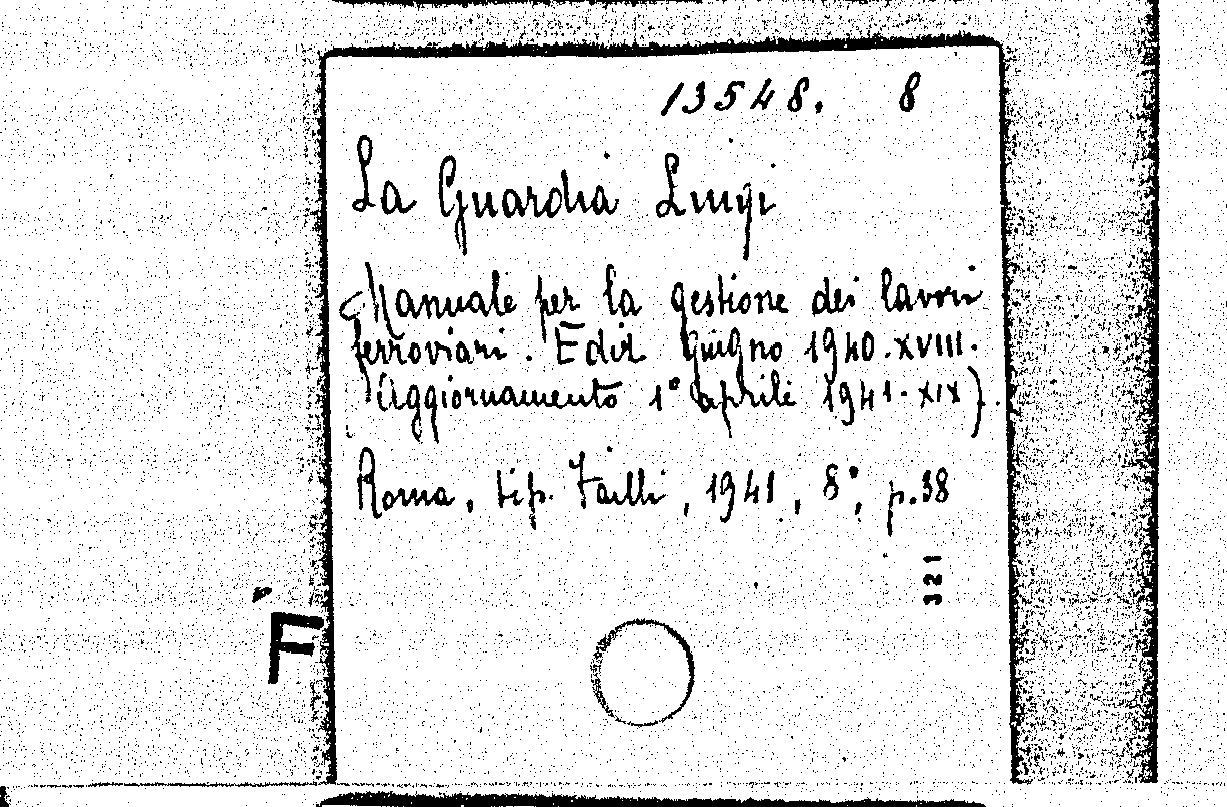 13548. 8
La Guardia Luigi
Manuale per la gestione dei lavori
ferroviari. Ediz. Giugno 1940.XVIII.
(Aggiornamento 1° aprile 1941.XIX).
Roma, tip. Failli, 1941, 8°, p.38
321
F